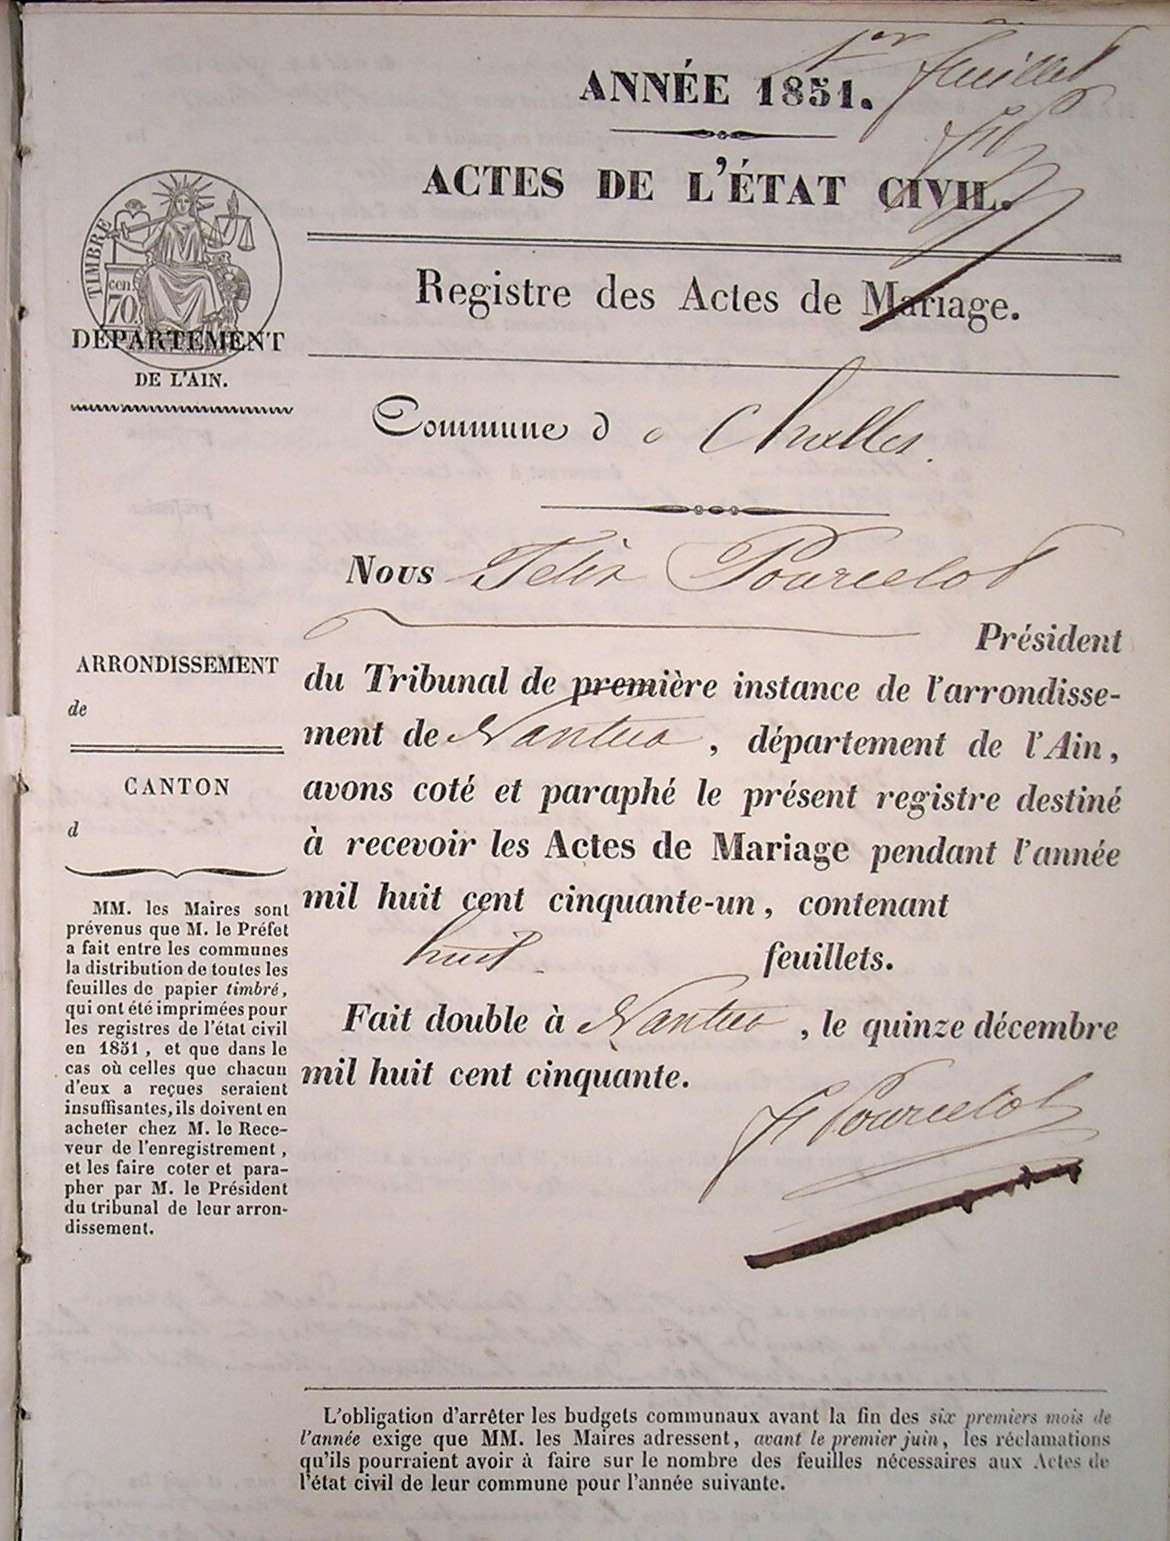 1er feuillet
ANNÉE 1851.
ACTES DE L'ÉTAT CIVIL.
Registre des Actes de Mariage.
TIMBRE
cen.
70.
DÉPARTEMENT
DE L'AIN.
Commune de Challes.
Nous Félix Pourcelot
Président
du Tribunal de première instance de l'arrondisse-
ment de Nantua, département de l'Ain,
avons coté et paraphé le présent registre destiné
à recevoir les Actes de Mariage pendant l'année
mil huit cent cinquante-un, contenant
huit feuillets.
Fait double à Nantua, le quinze décembre
mil huit cent cinquante.
F Pourcelot
ARRONDISSEMENT
de
CANTON
d
MM. les Maires sont
prévenus que M. le Préfet
a fait entre les communes
la distribution de toutes les
feuilles de papier timbré,
qui ont été imprimées pour
les registres de l'état civil
en 1851, et que dans le
cas où celles que chacun
d'eux a reçues seraient
insuffisantes, ils doivent en
acheter chez M. le Rece-
veur de l'enregistrement,
et les faire coter et para-
pher par M. le Président
du tribunal de leur arron-
dissement.
L'obligation d'arrêter les budgets communaux avant la fin des six premiers mois de
l'année exige que MM. les Maires adressent, avant le premier juin, les réclamations
qu'ils pourraient avoir à faire sur le nombre des feuilles nécessaires aux Actes de
l'état civil de leur commune pour l'année suivante.